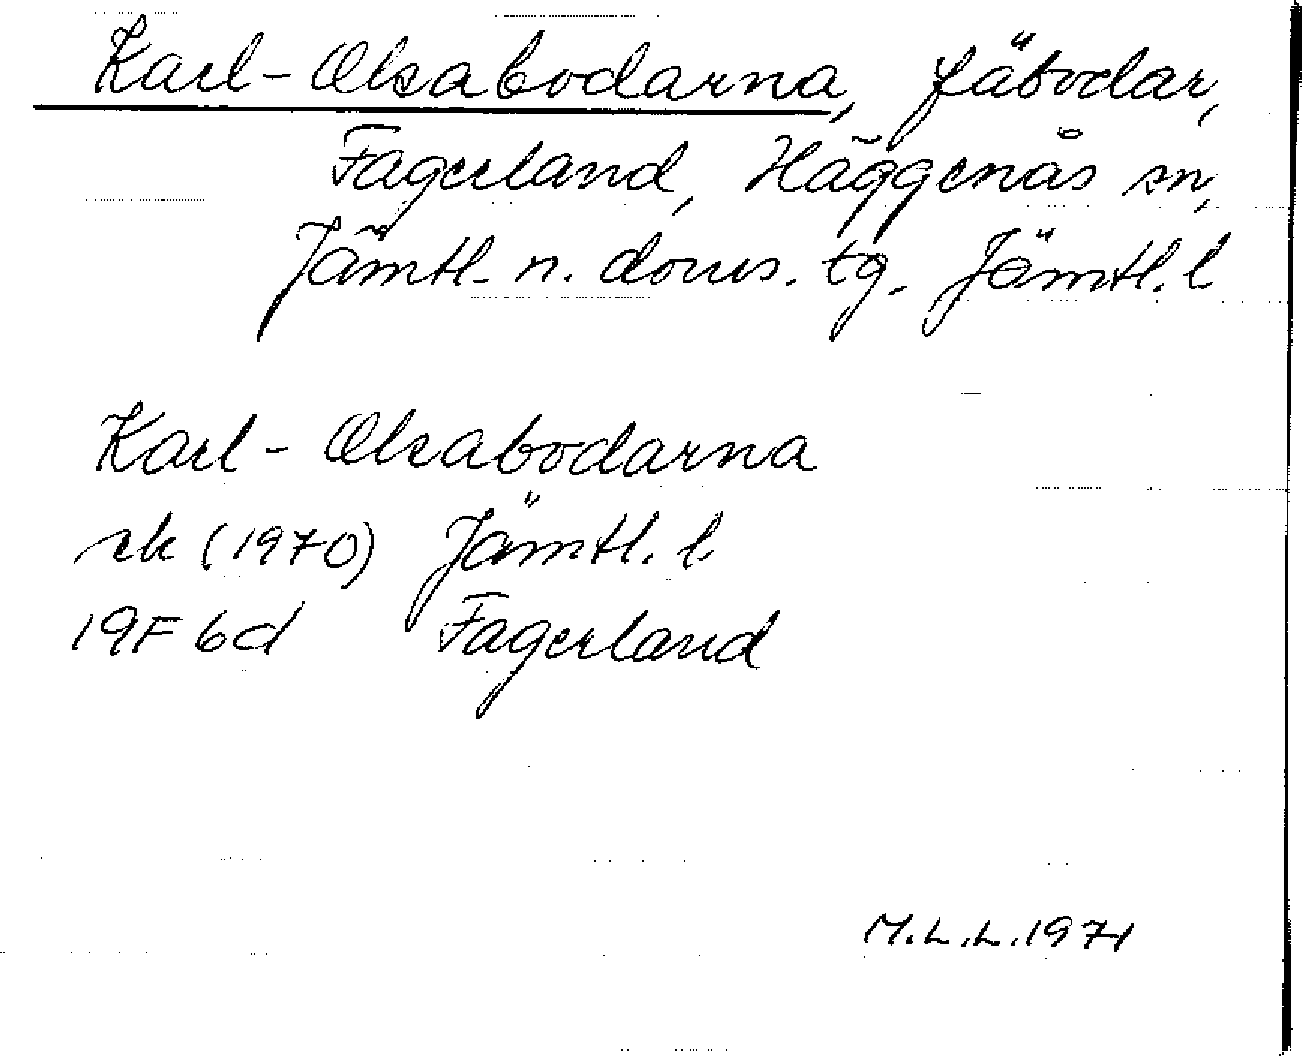 Karl-Olsabodarna, fäbodar,
Fagerland, Häggenås sn,
Jämtl. n. doms. tg. Jämtl. l
Karl-Olsabodarna
rk (1970) Jämtl. l.
19F 6d Fagerland
M.L.L. 1971